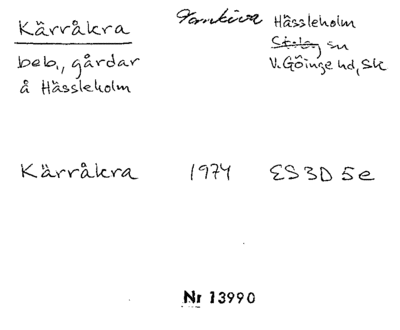 Kärråkra
beb., gårdar
å Hässleholm
Vankiva
Hässleholm
Stoby sn
V. Göinge hd, Sk
Kärråkra 1974 ES3D5e
Nr 13990